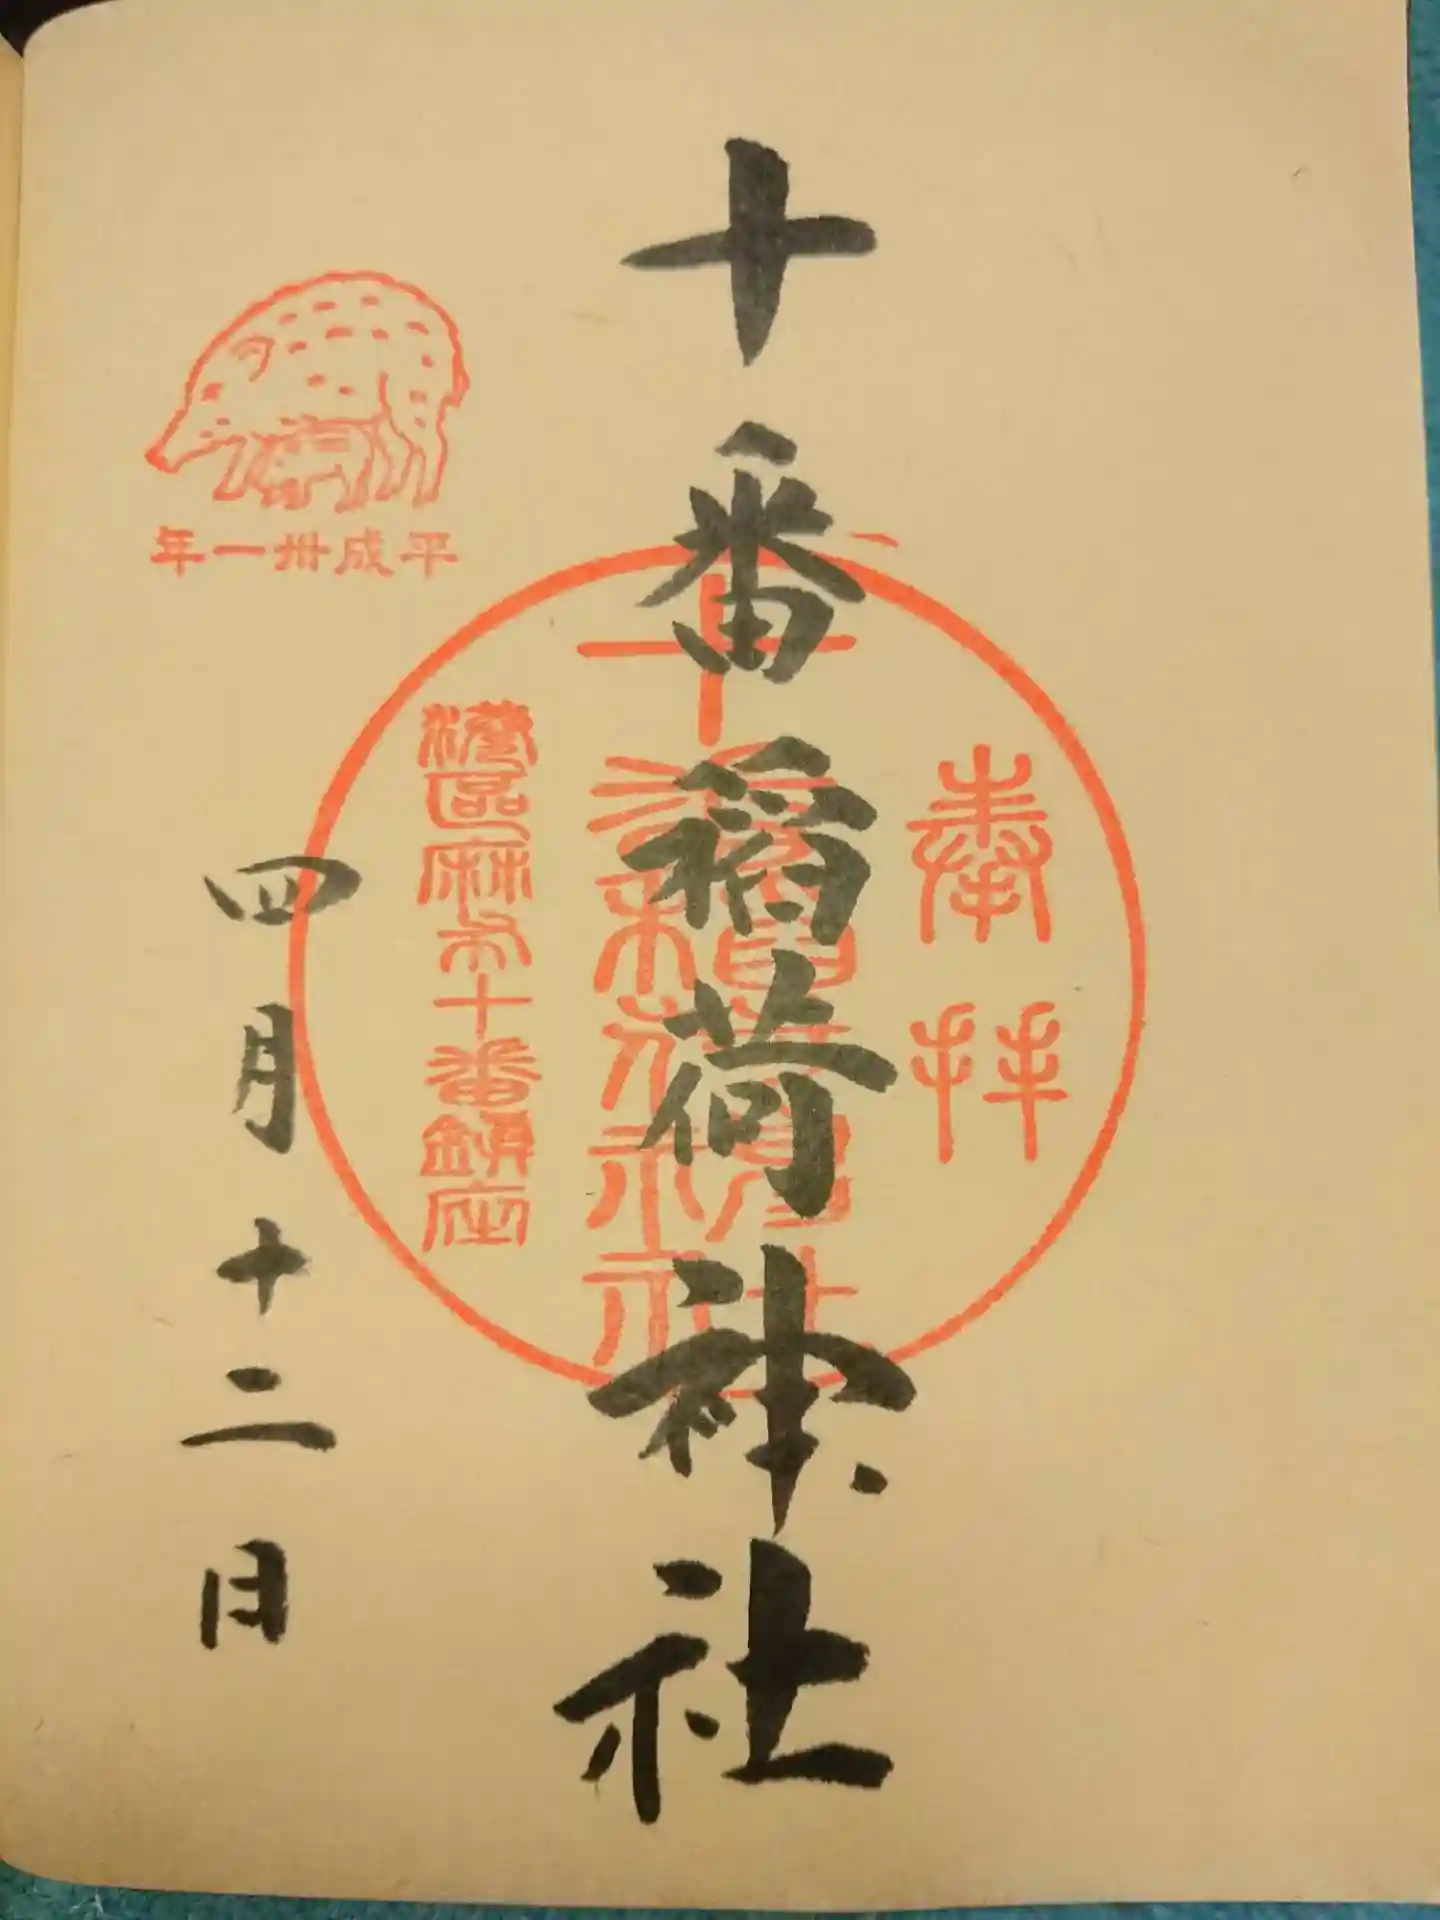 奉拝
十番稲荷神社
十番稲荷神社
港區麻布十番鎮座
平成卅一年
四月十二日